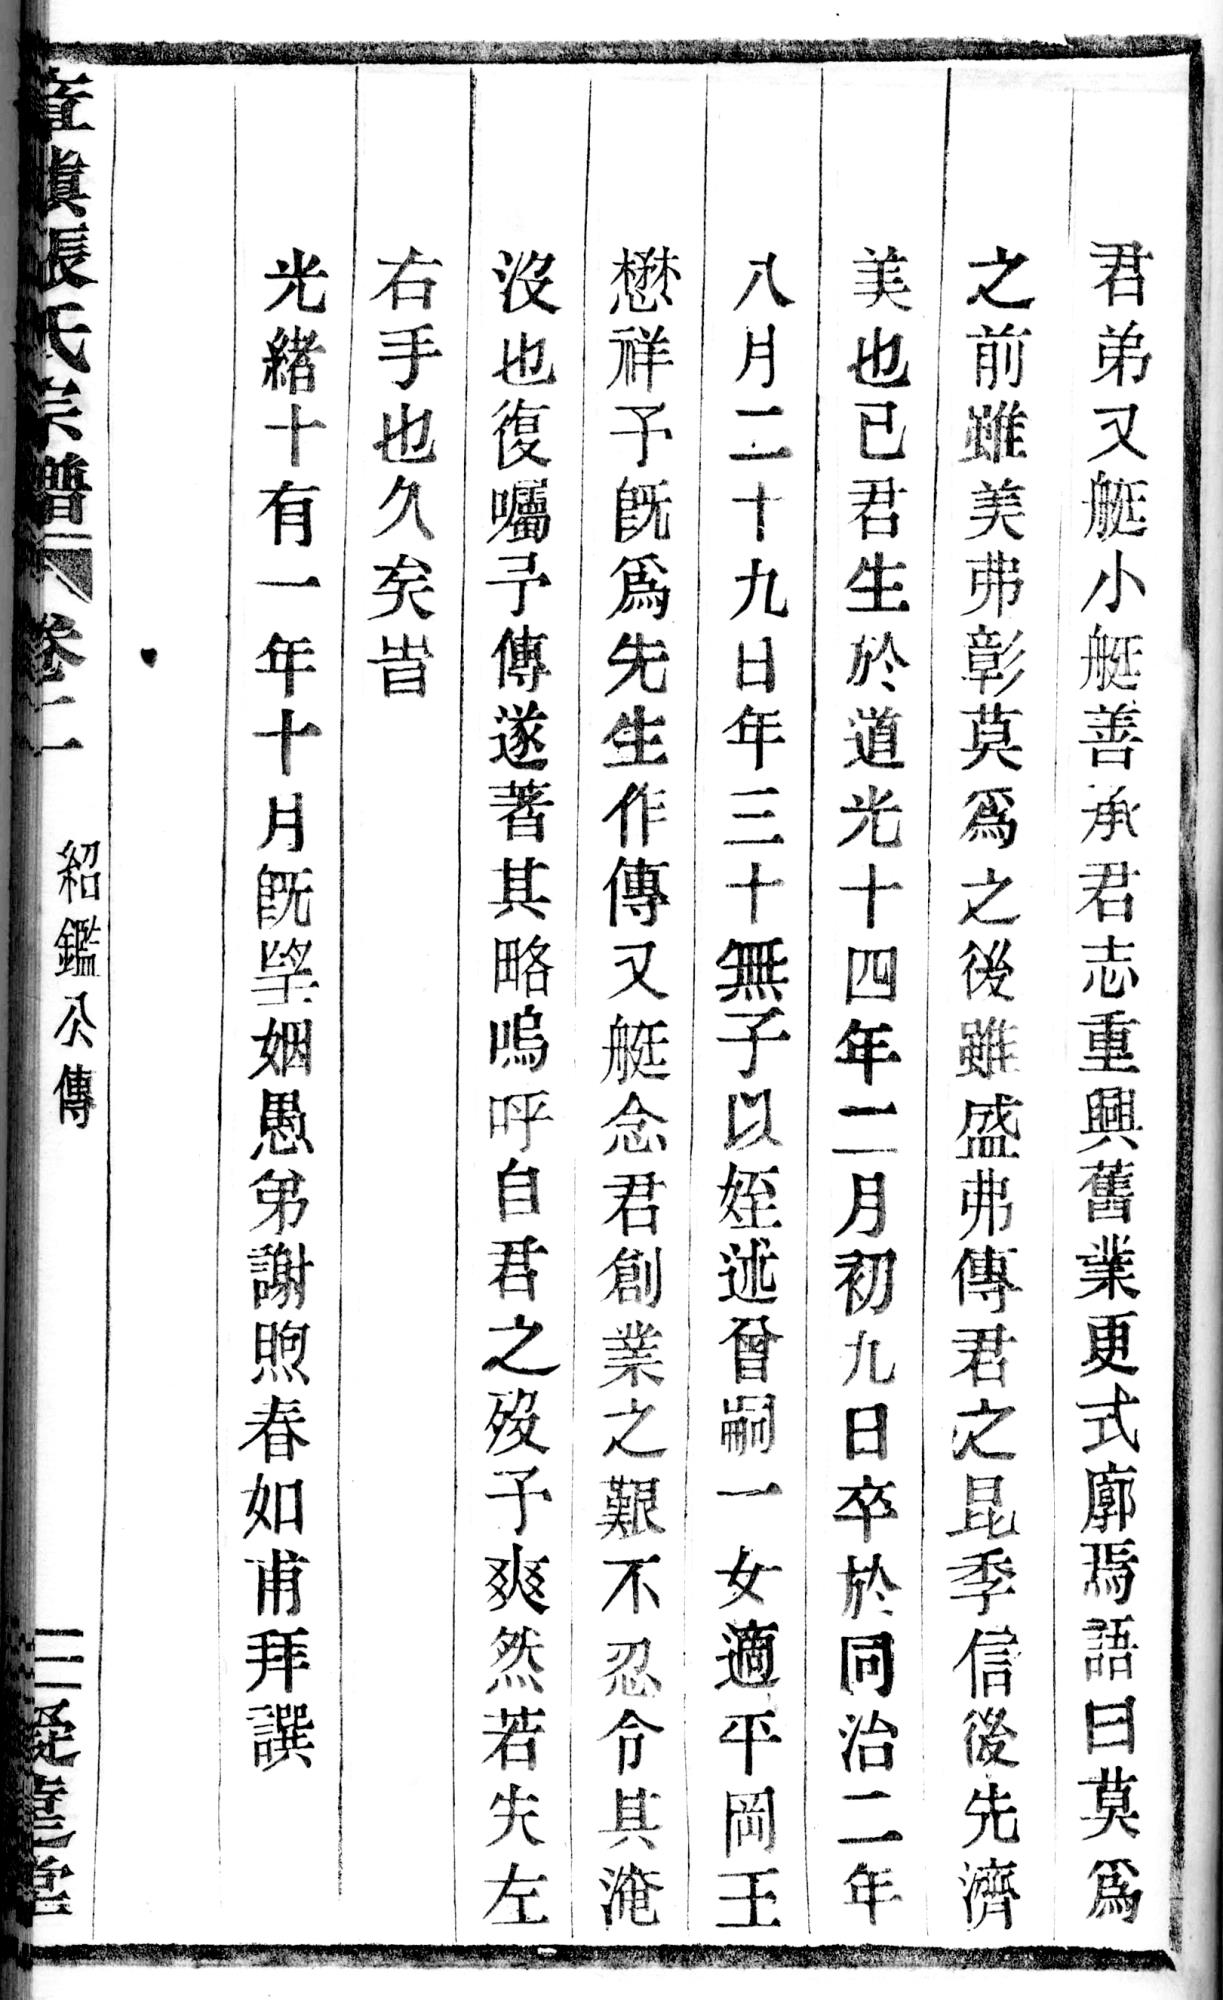 君弟又艇小艇善承君志重興舊業更式廓焉語曰莫爲
之前雖美弗彰莫爲之後雖盛弗傳君之昆季信後先濟
美也已君生於道光十四年二月初九日卒於同治二年
八月二十九日年三十無子以姪述曾嗣一女適平岡王
懋祥予旣爲先生作傳又艇念君創業之艱不忍令其淹
沒也復囑予傳遂著其略嗚呼自君之歿予爽然若失左
右手也久矣旹
光緒十有一年十月旣望姻愚弟謝煦春如甫拜譔
張氏宗譜 卷二 紹鑑公傳 三 堂